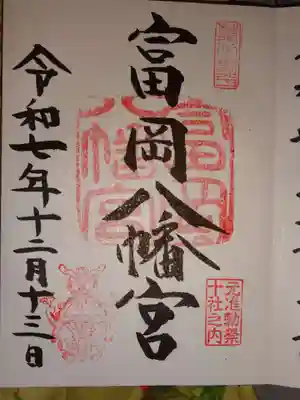 富岡八幡宮
令和七年十二月十三日
富岡
八幡宮
元准勅祭
十社之内